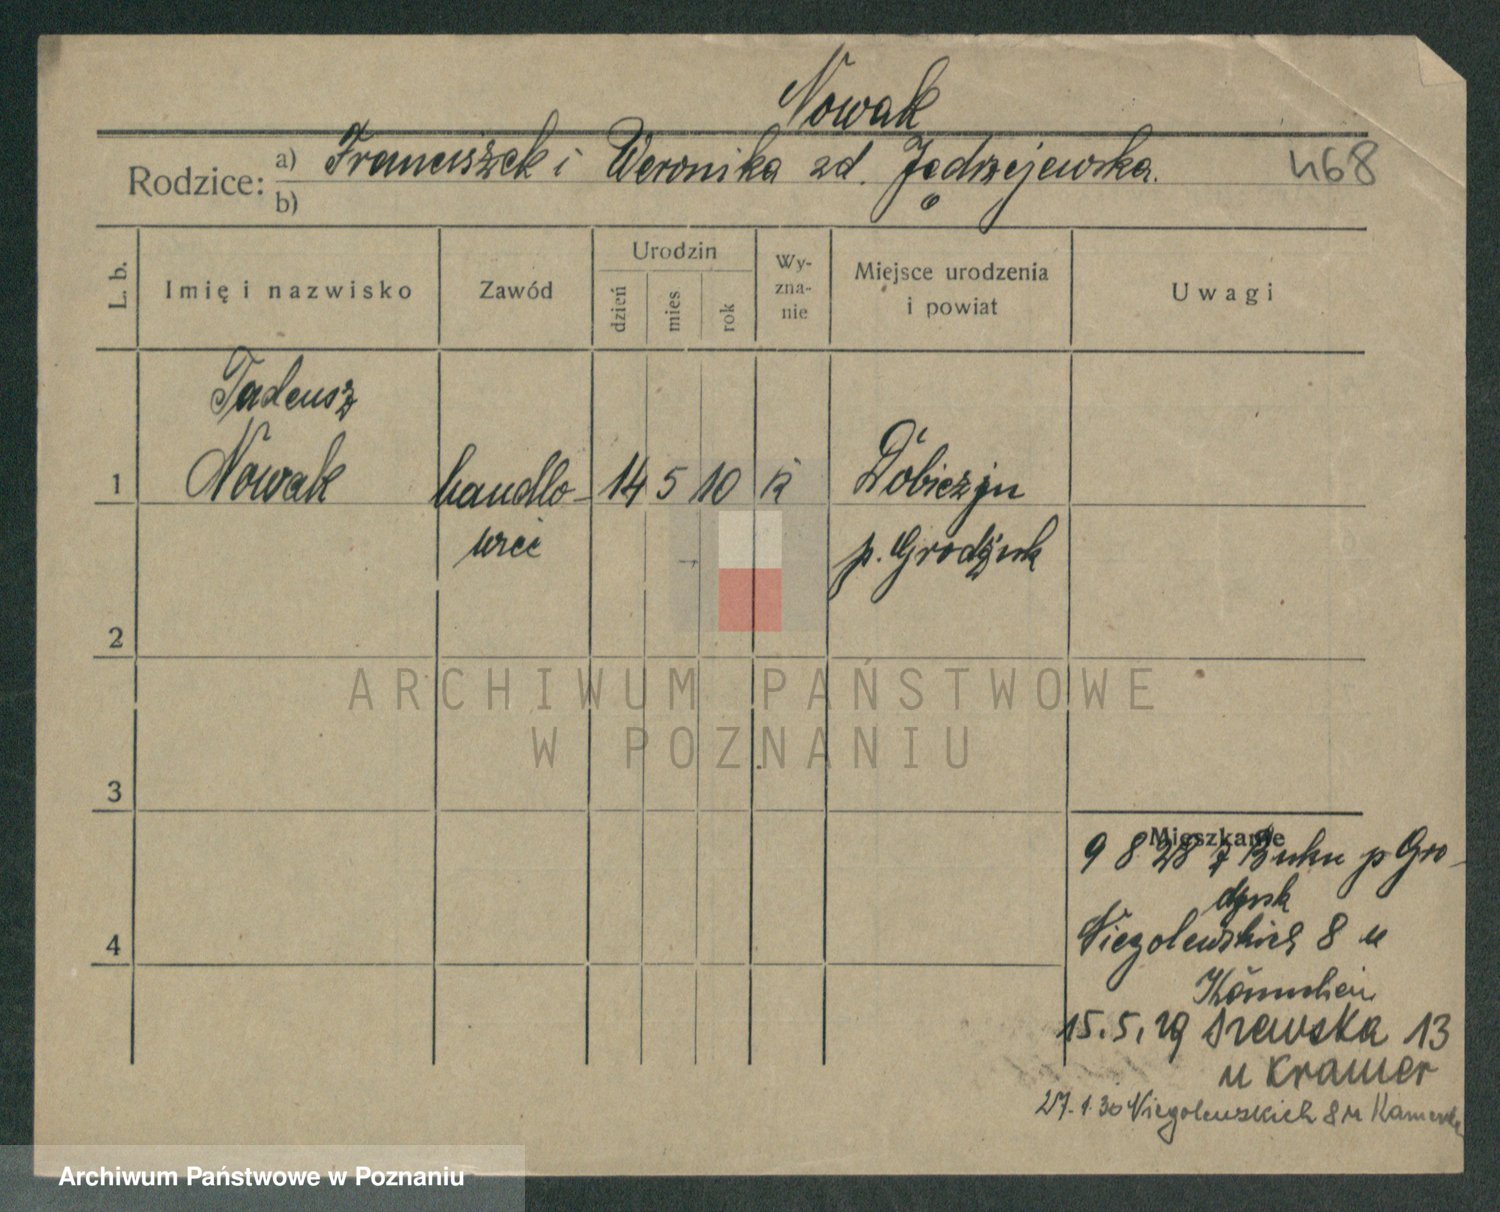 Nowak
Rodzice: a) Franciszek i Weronika zd. Jędrzejewska.
468
b)
L. b.
Imię i nazwisko
Zawód
Urodzin
dzień
mies
rok
Wy-
zna-
nie
Miejsce urodzenia
i powiat
Uwagi
Tadeusz
1 Nowak handlo- 14 5 10 k Dobieżyn
wiec p. Grodzisk
2
ARCHIWUM PAŃSTWOWE
W POZNANIU
3
Mieszkanie
9 8 28 z Buku p Gro-
dzisk
4 Niegolewskich 8 u
15.5.29 Szewska 13
u Kramer
27.1.30 Niegolewskich 8 u
Archiwum Państwowe w Poznaniu